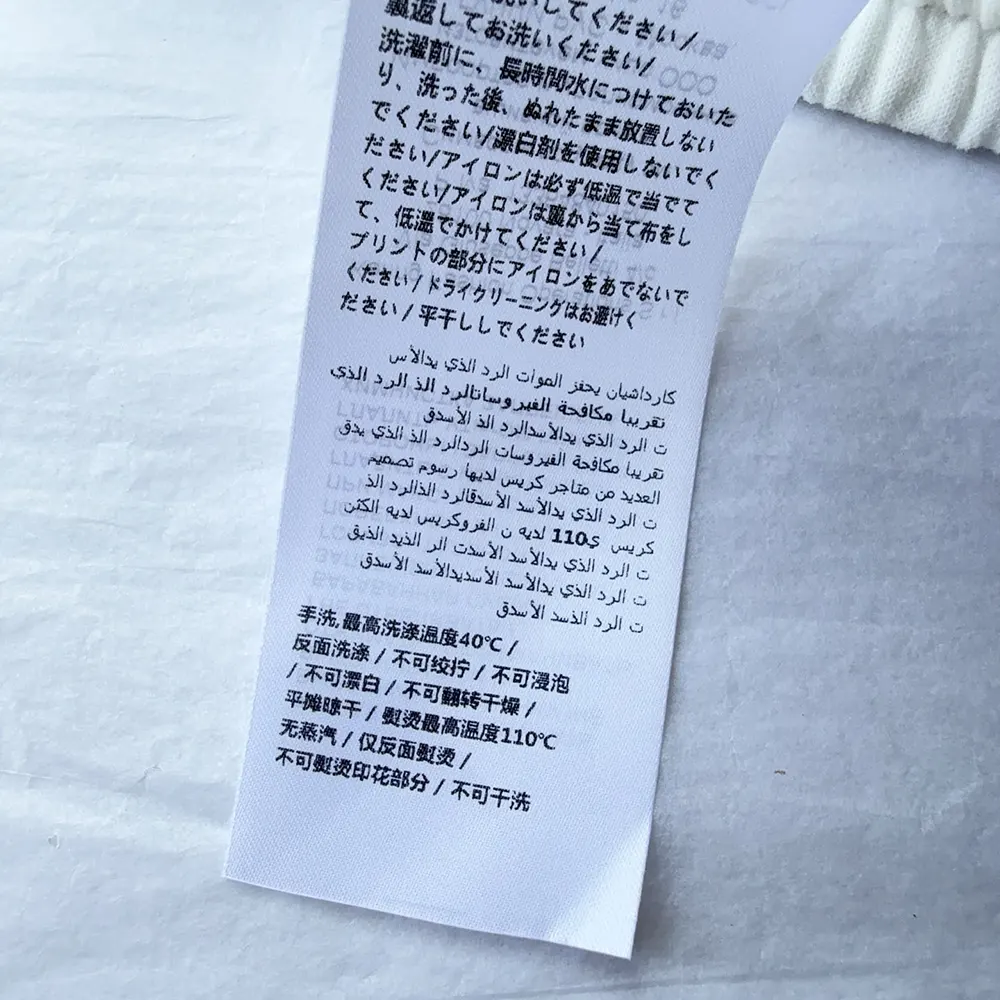 洗いしてください/
裏返してお洗いください/
洗濯前に、長時間水につけておいた
り、洗った後、ぬれたまま放置しない
でください/漂白剤を使用しないでく
ださい/アイロンは必ず低温で当でて
ください/アイロンは裏から当て布をし
て、低温でかけてください/
プリントの部分にアイロンをあでないで
ください/ドライクリーニングはお避けく
ださい/平干ししでください
كارداشيان يحفز الموات الرد الذي يدالأس
تقريبا مكافحة الفيروساتالرد الذ الرد الذي
ت الرد الذي يدالأسدالرد الذ الأسدق
تقريبا مكافحة الفيروسات الردالرد الذ الذي يدق
العديد من متاجر كريس لديها رسوم تصميم
ت الرد الذي يدالأسد الأسدقالرد الذالرد الذ
كريس ي110 لديه ن الفروكريس لديه الكثن
ت الرد الذي يدالأسد الأسدت الر الذيد الذيق
ت الرد الذي يدالأسد الأسديدالأسد الأسدق
ت الرد الذسد الأسدق
手洗,最高洗涤温度40℃/
反面洗涤/不可绞拧/不可浸泡
/不可漂白/不可翻转干燥/
平摊晾干/熨烫最高温度110℃
无蒸汽/仅反面熨烫/
不可熨烫印花部分/不可干洗